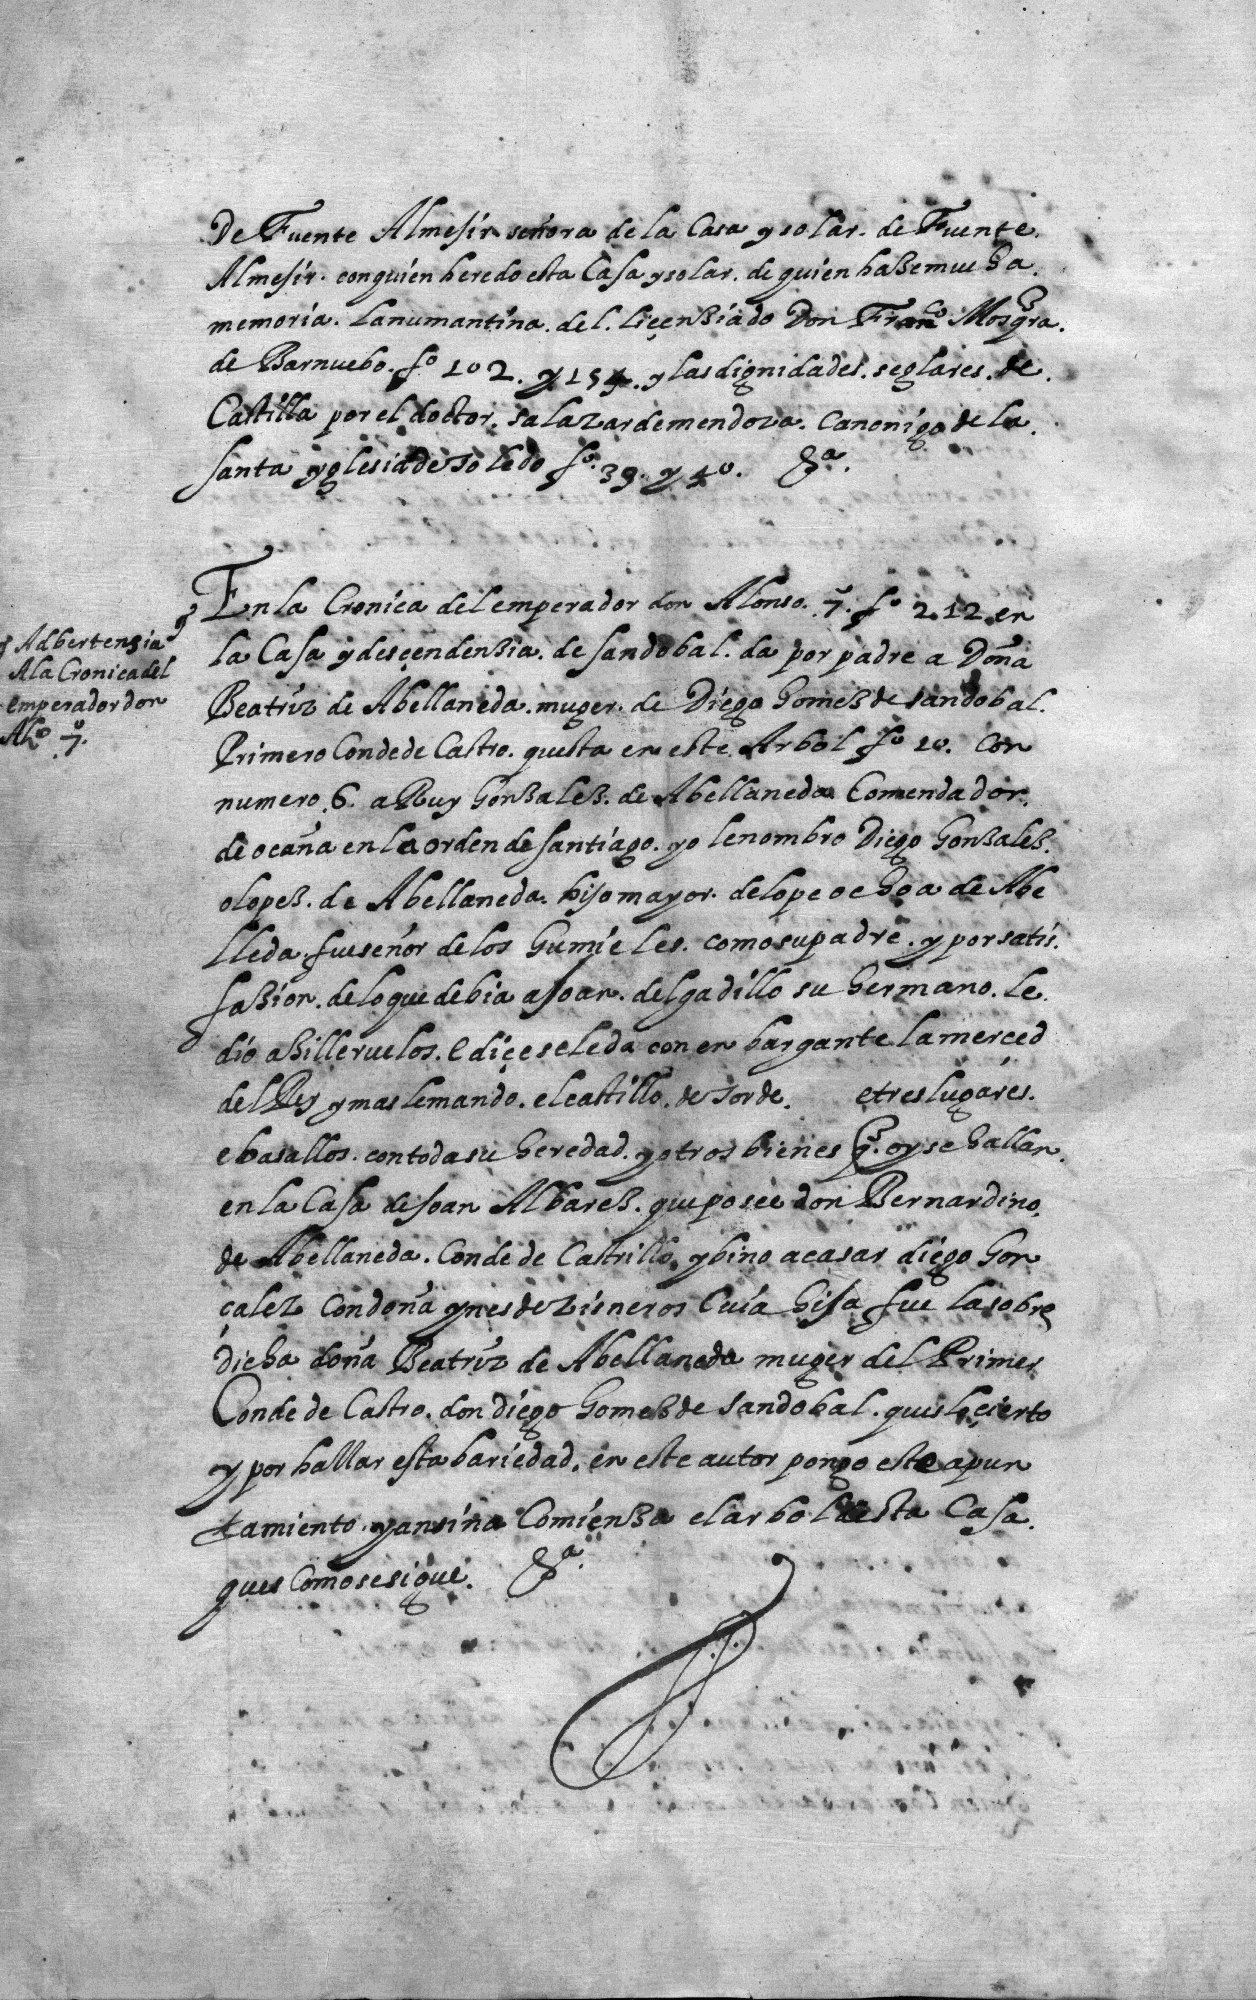 De Fuente Almesir señora de la Casa y solar. de Fuente.
Almesir. con quien heredo esta Casa y solar. de quien haßemucha.
memoria. la numantina. del. liçenßiado Don Franco Mosqra.
de Barnuebo. fo 102. y 154. y las dignidades. seglares. de.
Castilla por el doctor. salazar de mendoza. Canonigo de la.
santa yglesia de Toledo fo. 39. y 40. &a.
En la Cronica del emperador don Alonso. 7o. fo 212. en
la Casa y desçendenßia. de sandobal. da por padre a Doña
Beatriz de Abellaneda. muger. de Diego Gomeß de sandobal.
Primero Conde de Castro. questa en este Arbol fo 10. Con
numero. 6. a Ruy Gonßaleß. de Abellaneda Comendador.
de ocaña en la orden de santiago. yo le nombro Diego Gonßaleß.
o lopeß. de Abellaneda. hijo mayor. de lope ochoa de Abe
lleda. fue señor de los Gumieles. como su padre. y por satis.
faßion. de lo que debia a Joan. delgadillo su hermano. le.
dio a hilleruelos. e diçese le da con en bargante la merced
del Rey y mas le mando. el castillo. de Torde. e tres lugares.
e basallos. con toda su heredad. y otros bienes q. oy se hallan.
en la Casa de Joan Albareß. que posee don Bernardino.
de Abellaneda. Conde de Castrillo. y bino a casar diego Gon
çalez Con doña ynes de zisneros Cuia hija fue la sobre
dicha doña Beatriz de Abellaneda muger del Primer
Conde de Castro. don diego Gomeß de sandobal. ques lo çierto
y por hallar esta bariedad. en este autor pongo este apun
tamiento. y ansina Comienßa el arbol desta Casa.
ques Como se sigue. &a.
Adbertenzia
A la Cronica del
emperador don
Alo. 7o.